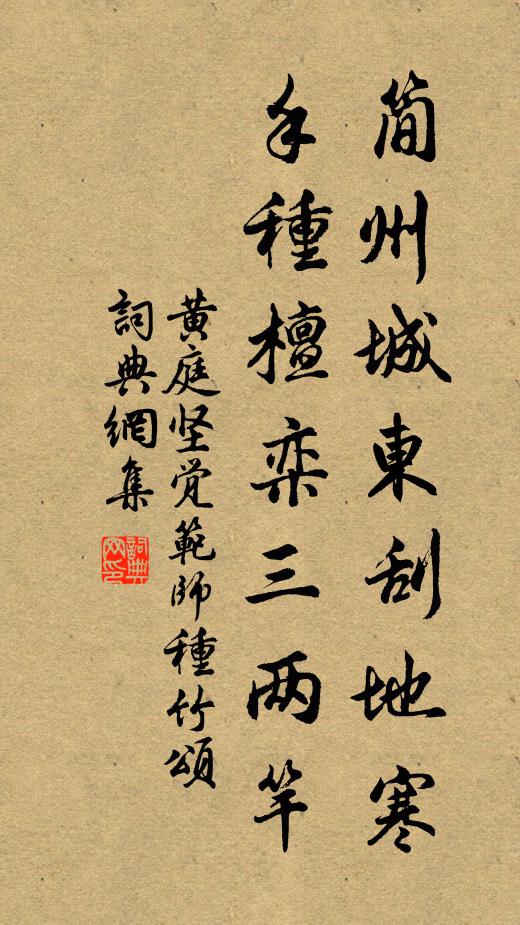 简州城東刮地寒
手種檀栾三两竿
黄庭坚觉範師種竹頌
詞典網集
詞典网印